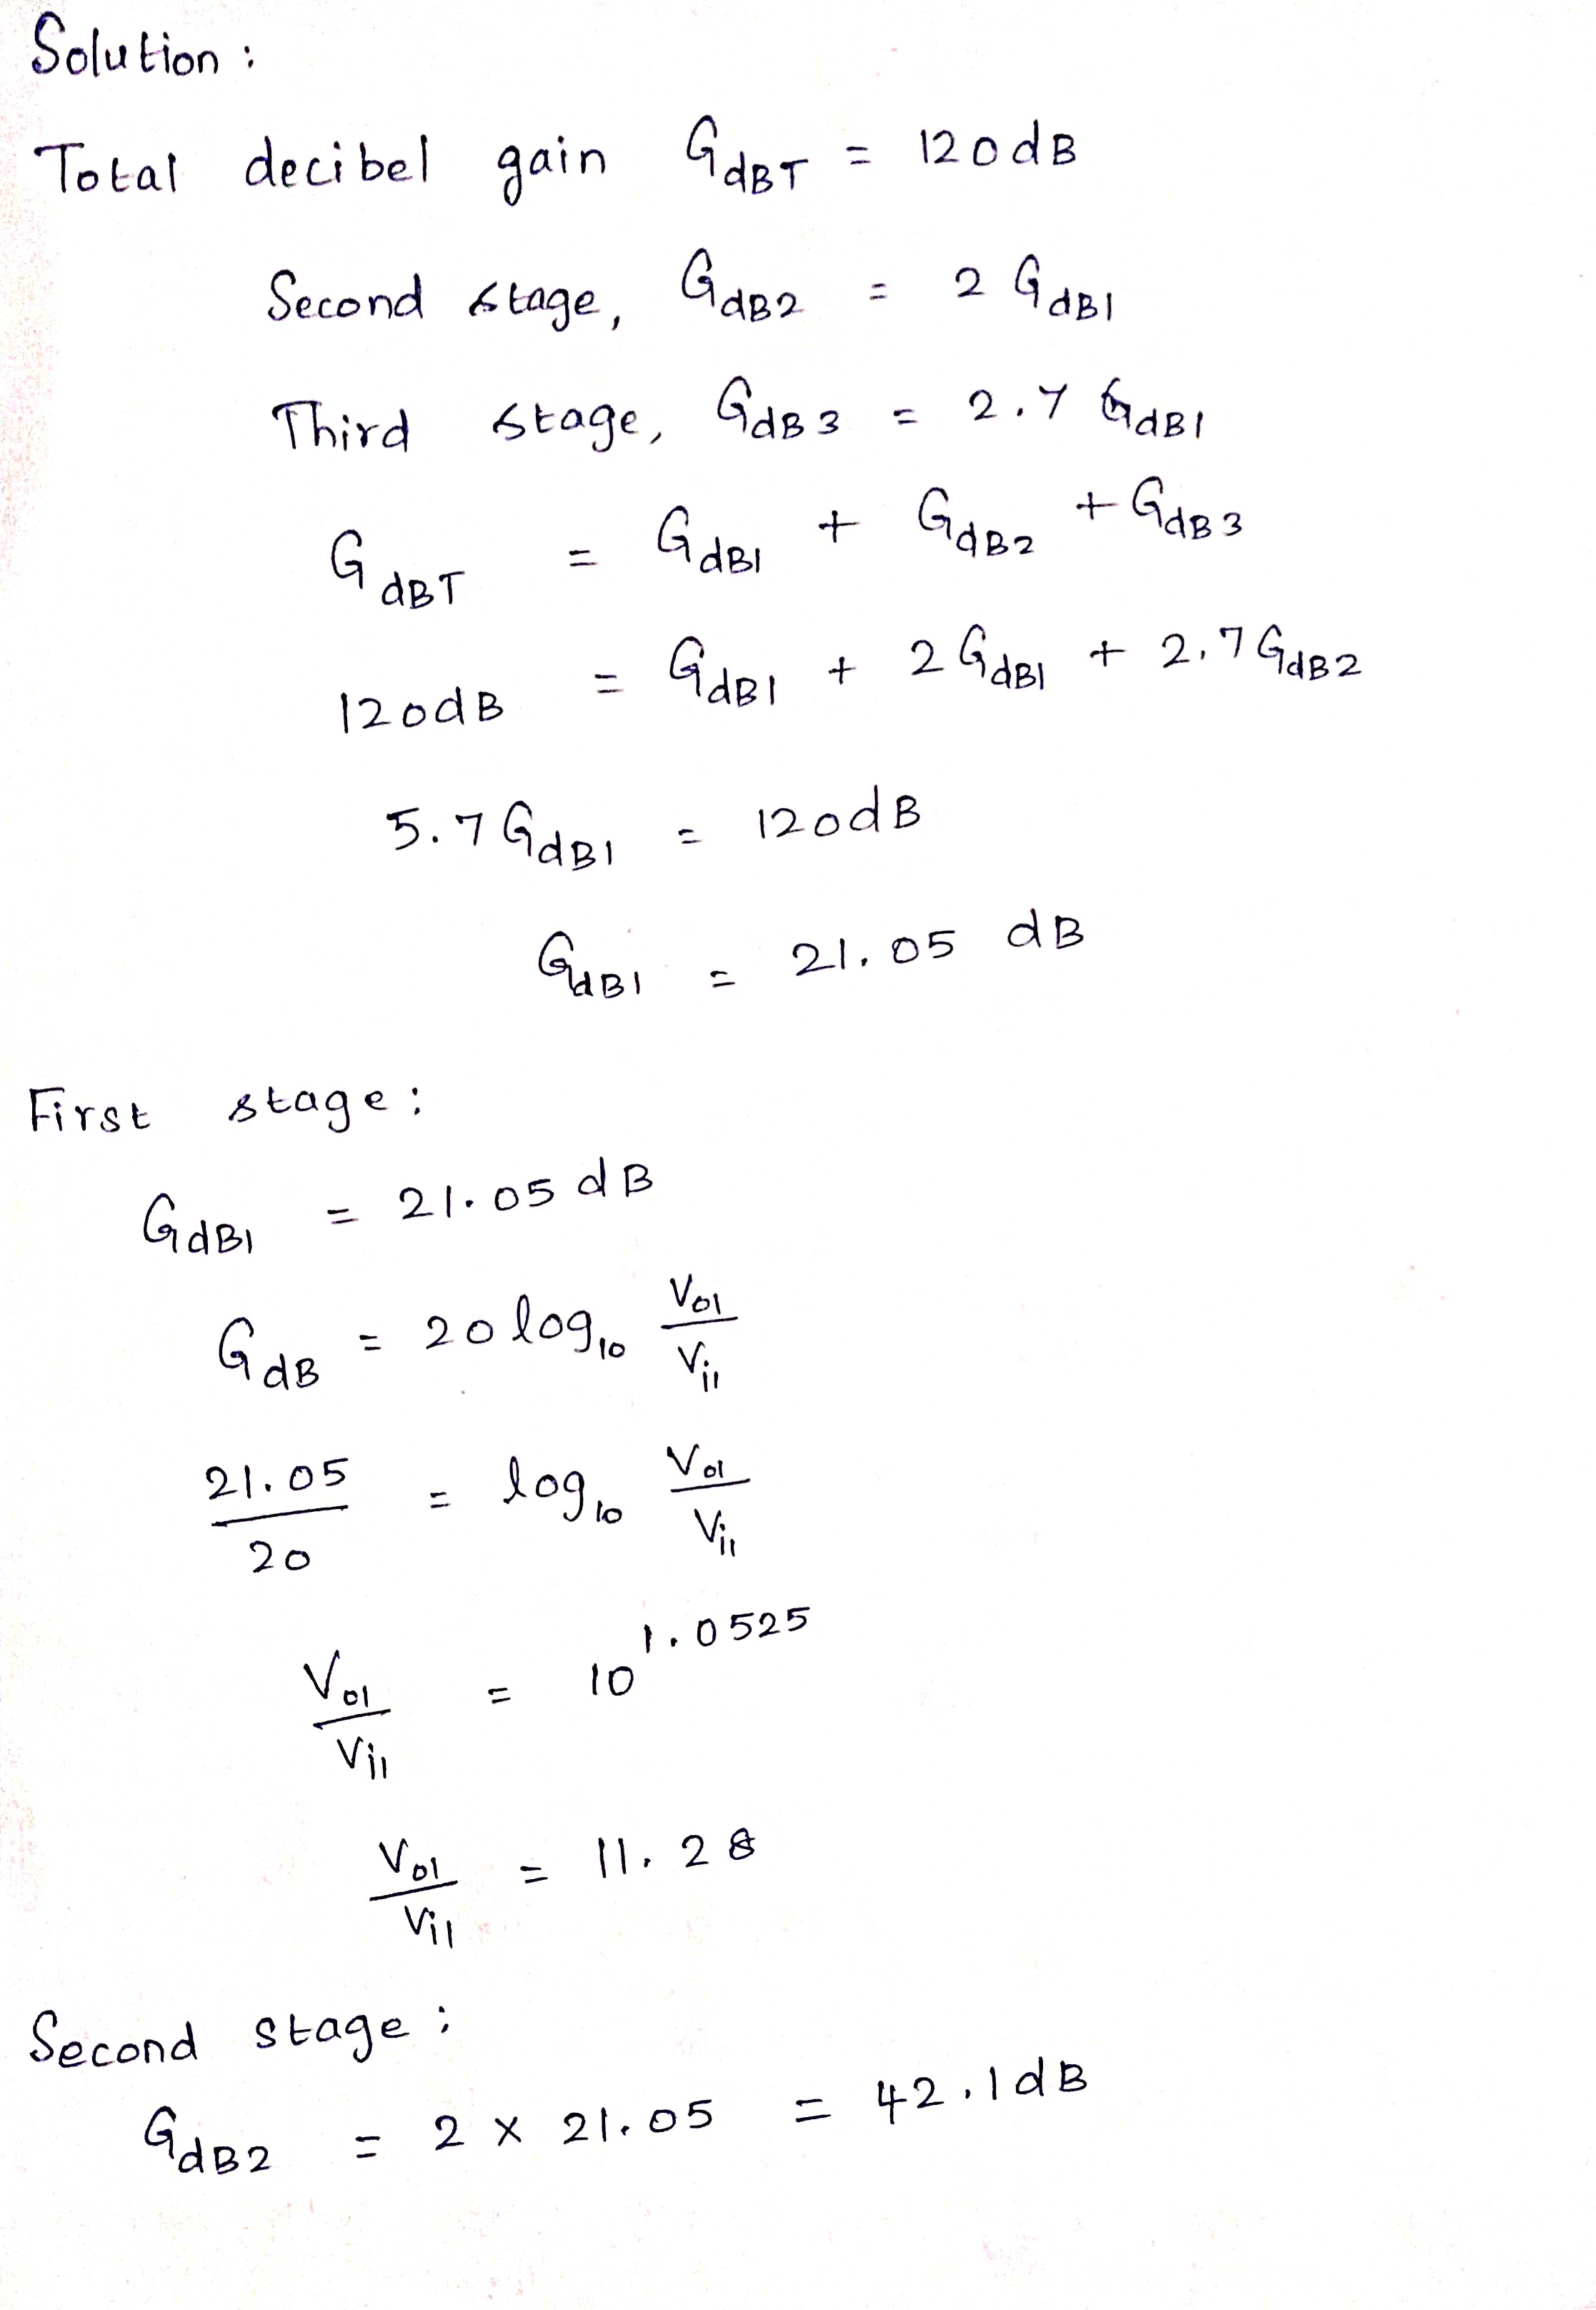 Solution :
Total decibel gain GdBT = 120dB
Second stage, GdB2 = 2 GdB1
Third stage, GdB3 = 2.7 GdB1
GdBT = GdB1 + GdB2 + GdB3
120dB = GdB1 + 2 GdB1 + 2.7 GdB2
5.7 GdB1 = 120dB
GdB1 = 21.05 dB
First stage :
GdB1 = 21.05 dB
GdB = 20 log10 Vo1/Vi1
21.05/20 = log10 Vo1/Vi1
Vo1/Vi1 = 10^1.0525
Vo1/Vi1 = 11.28
Second stage :
GdB2 = 2 x 21.05 = 42.1dB